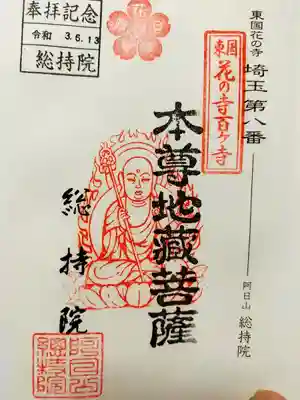 東国花の寺
埼玉第八番
阿日山 総持院
東国
花の寺百ヶ寺
奉拝記念
令和 3.6.13
総持院
本尊地蔵菩薩
総持院